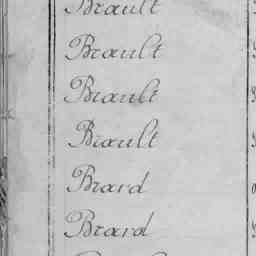 Brault
Brault
Brault
Brault
Brard
Brard